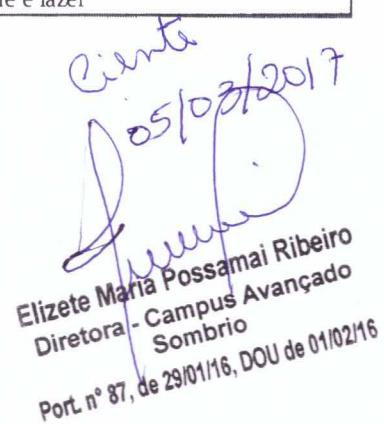 e lazer
Ciente
05/03/2017
Elizete Maria Possamai Ribeiro
Diretora - Campus Avançado
Sombrio
Port. nº 87, de 29/01/16, DOU de 01/02/16